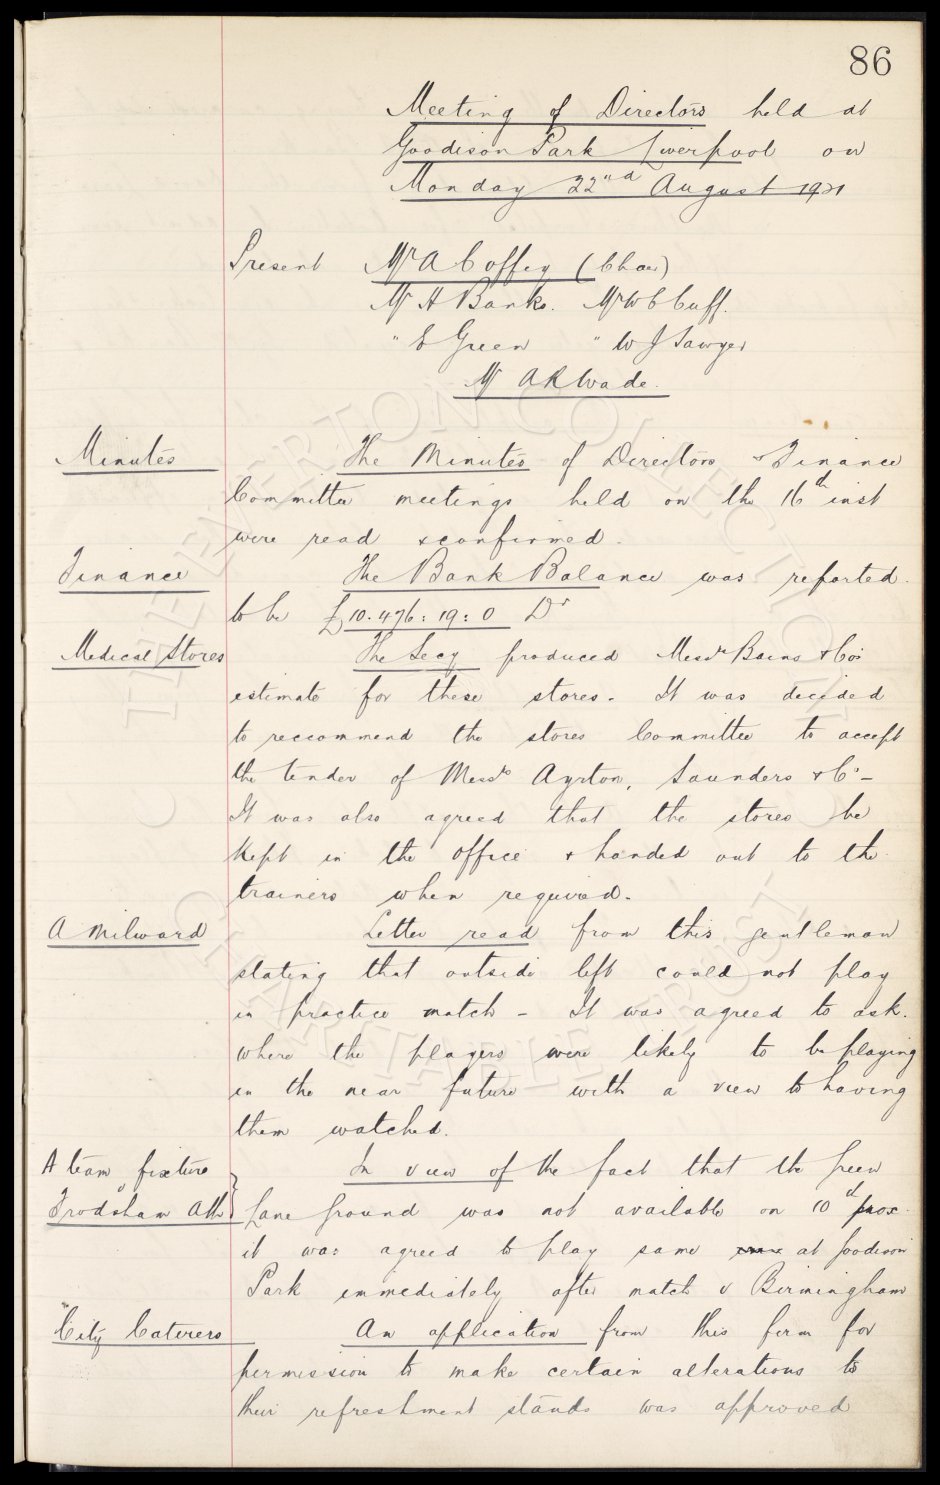 86
Meeting of Directors held at
Goodison Park Liverpool on
Monday 22nd August 1921
Present Mr A Coffey (Chair)
Mr H Banks. Mr W C Cuff.
" E Green " W J Sawyer
Mr A R Wade.
Minutes The Minutes of Directors & Finance
Committee meetings held on the 16th inst
were read & confirmed.
Finance The Bank Balance was reported
to be £10.476:19:0 Dr
Medical Stores The Secy produced Messrs Bains & Co's
estimate for these stores. It was decided
to reccommend the stores Committee to accept
the tender of Messrs Ayrton, Saunders & Co -
It was also agreed that the stores be
kept in the office & handed out to the
trainers when required.
A Milward Letter read from this gentleman
stating that outside left could not play
in practice match - It was agreed to ask
where the players were likely to be playing
in the near future with a view to having
them watched.
A team fixture In view of the fact that the Green
Frodsham Ath } Lane Ground was not available on 10th prox
it was agreed to play same at Goodison
Park immediately after match v Birmingham
City Caterers An application from this firm for
permission to make certain alterations to
their refreshment stands was approved
THE EVERTON COLLECTION
CHARITABLE TRUST